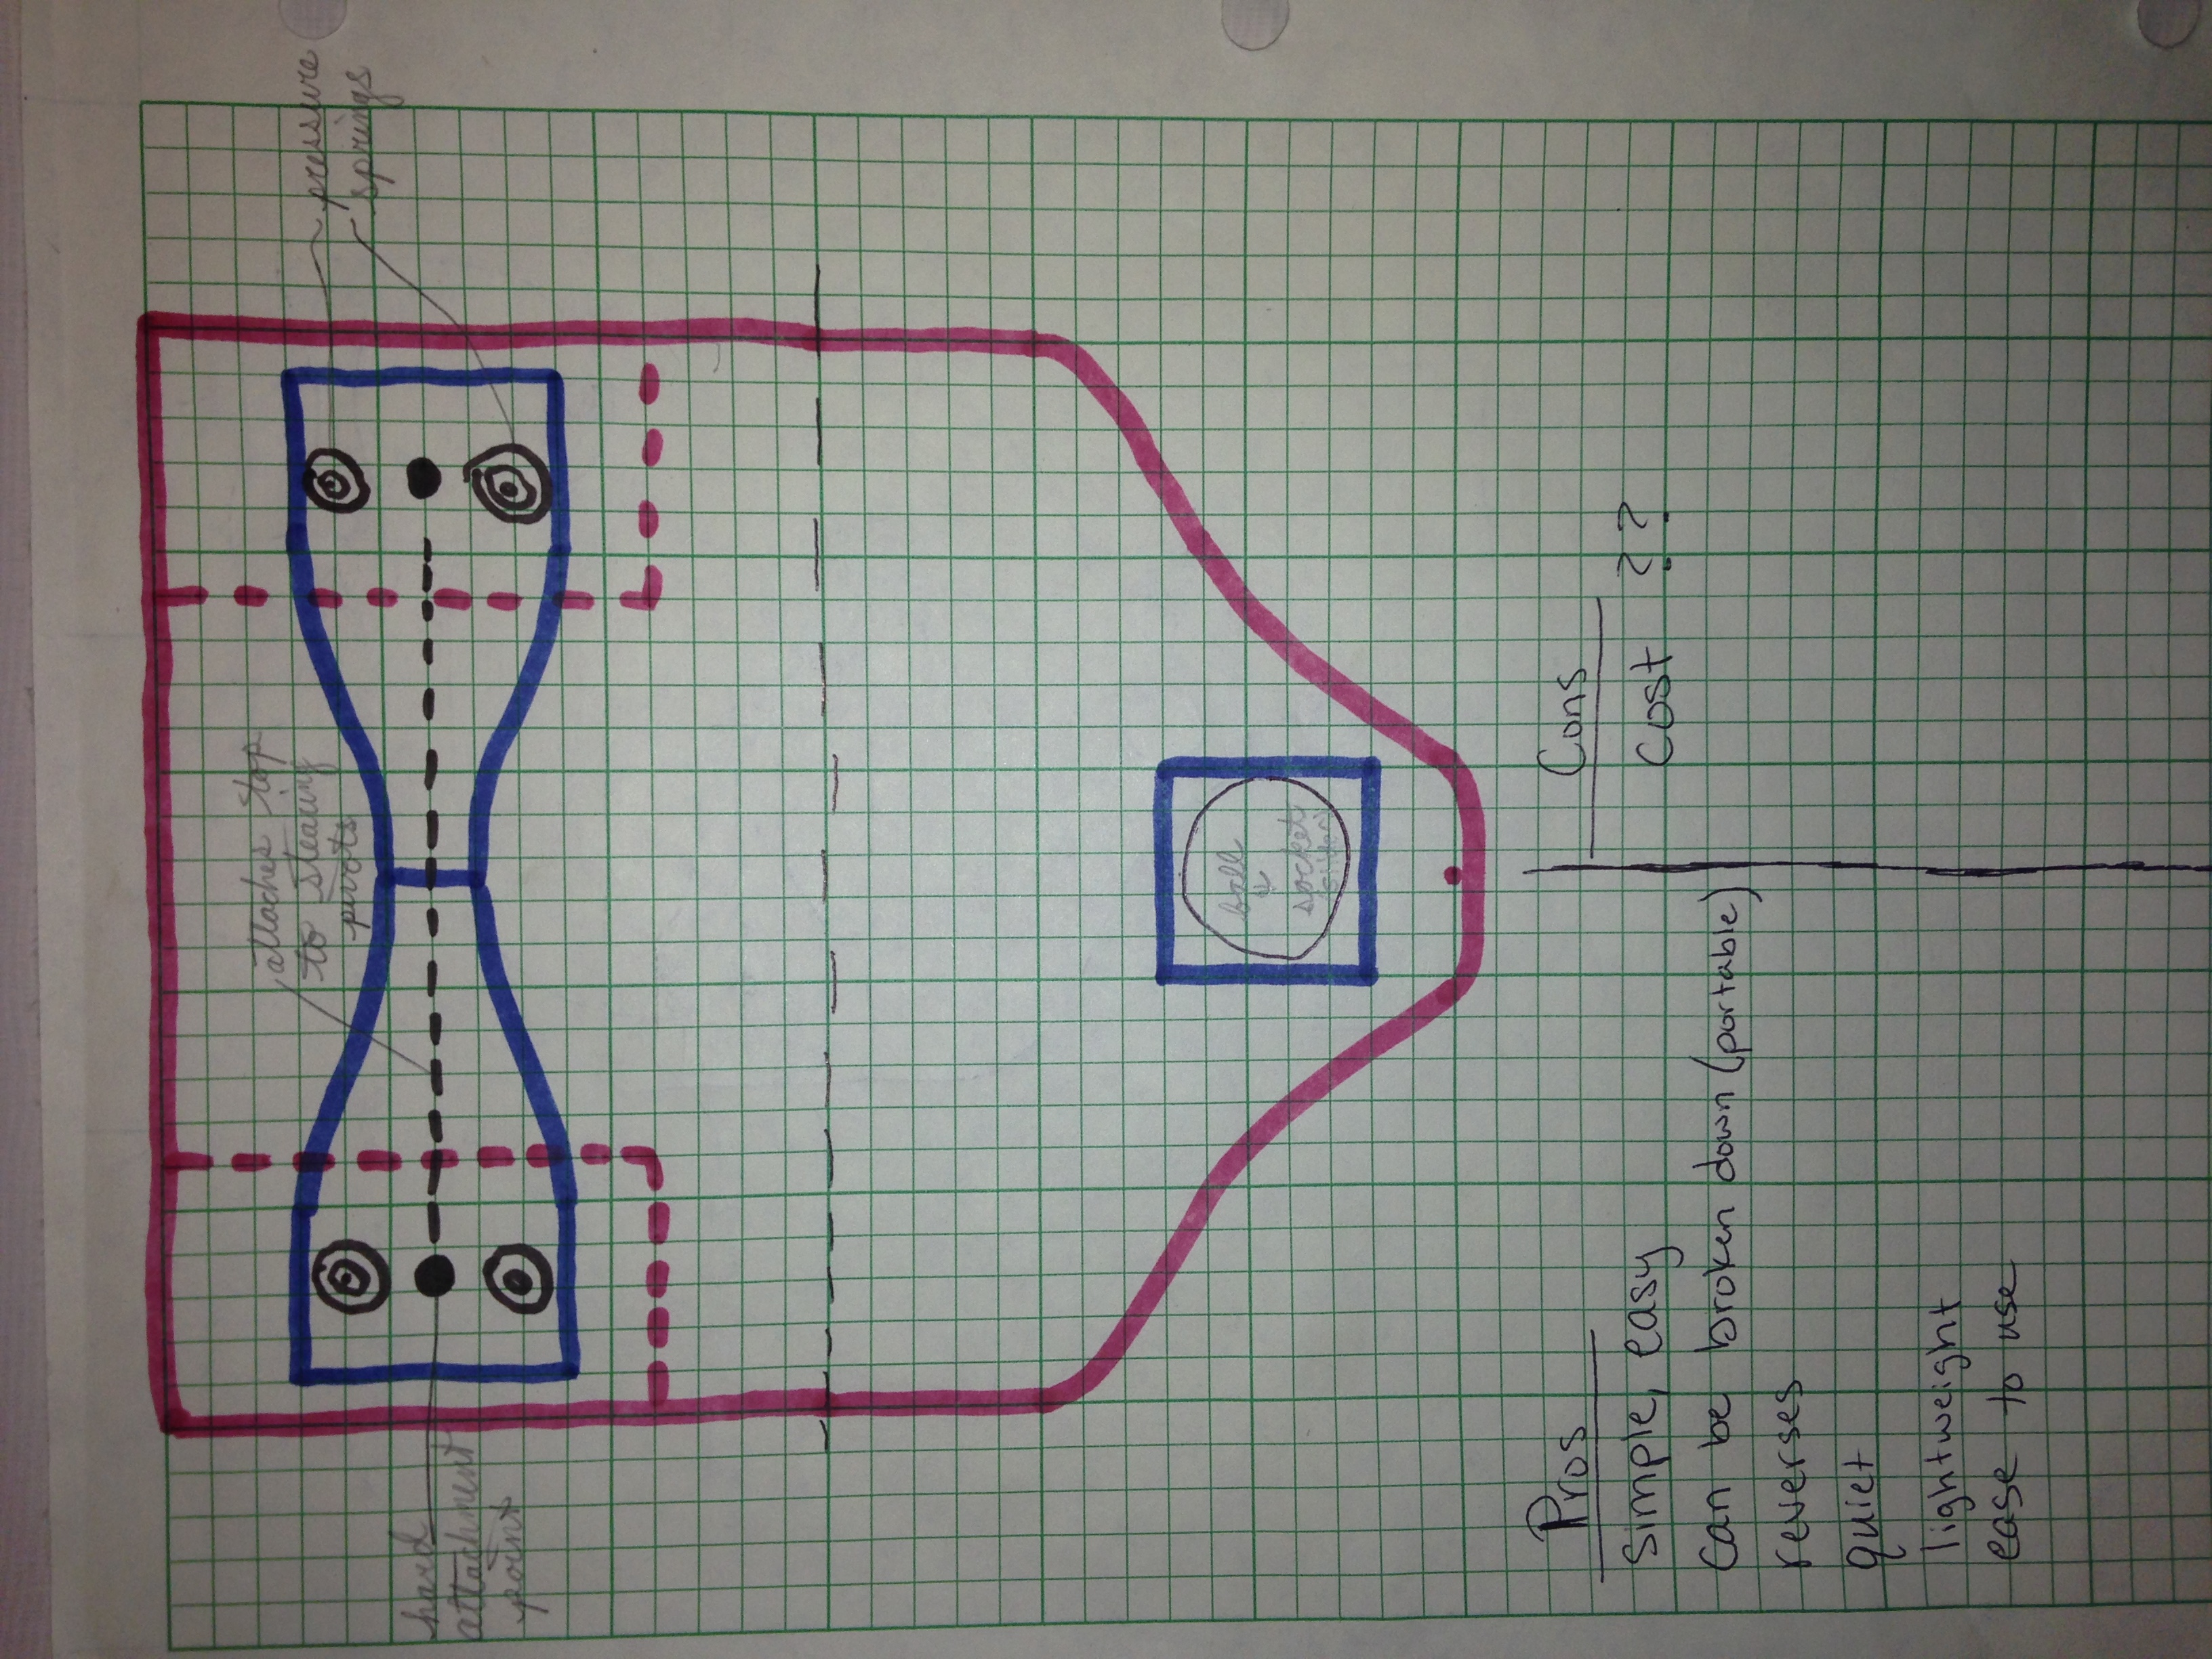 attaches top
to stearing
pivots
pressure
springs
hard
attachment
point
ball
&
socket
Pros
simple, easy
can be broken down (portable)
reverses
quiet
lightweight
ease to use
Cons
cost ??